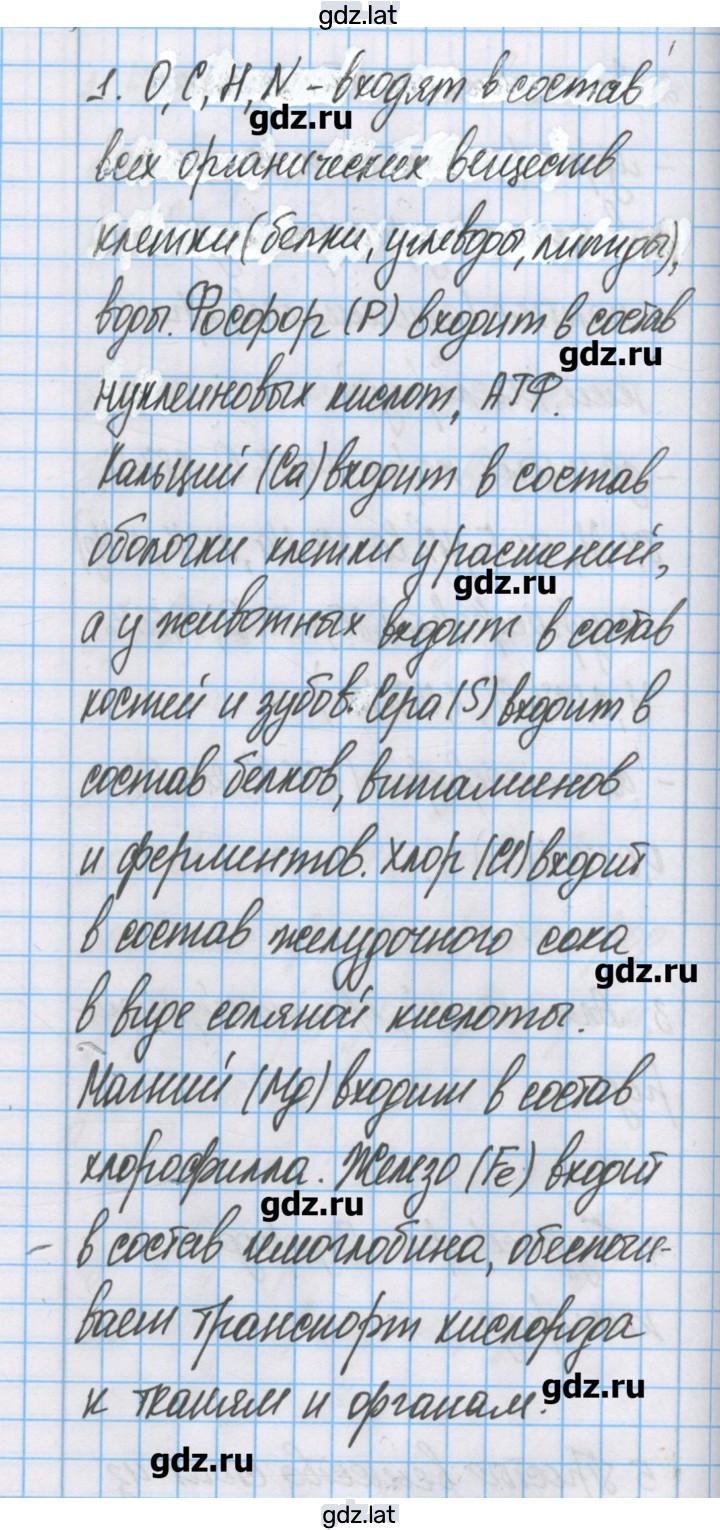 gdz.lat
1. O, C, H, N - входят в состав
gdz.ru
всех органических веществ
клетки (белки, углеводы, липиды),
воды. Фосфор (P) входит в состав
gdz.ru
нуклеиновых кислот, АТФ.
Кальций (Ca) входит в состав
оболочки клетки у растений,
gdz.ru
а у животных входит в состав
костей и зубов. Сера (S) входит в
состав белков, витаминов
и ферментов. Хлор (Cl) входит
в состав желудочного сока
gdz.ru
в виде соляной кислоты.
Магний (Mg) входит в состав
хлорофилла. Железо (Fe) входит
gdz.ru
- в состав гемоглобина, обеспечи-
вает транспорт кислорода
к тканям и органам.
gdz.ru
gdz.ru
gdz.lat